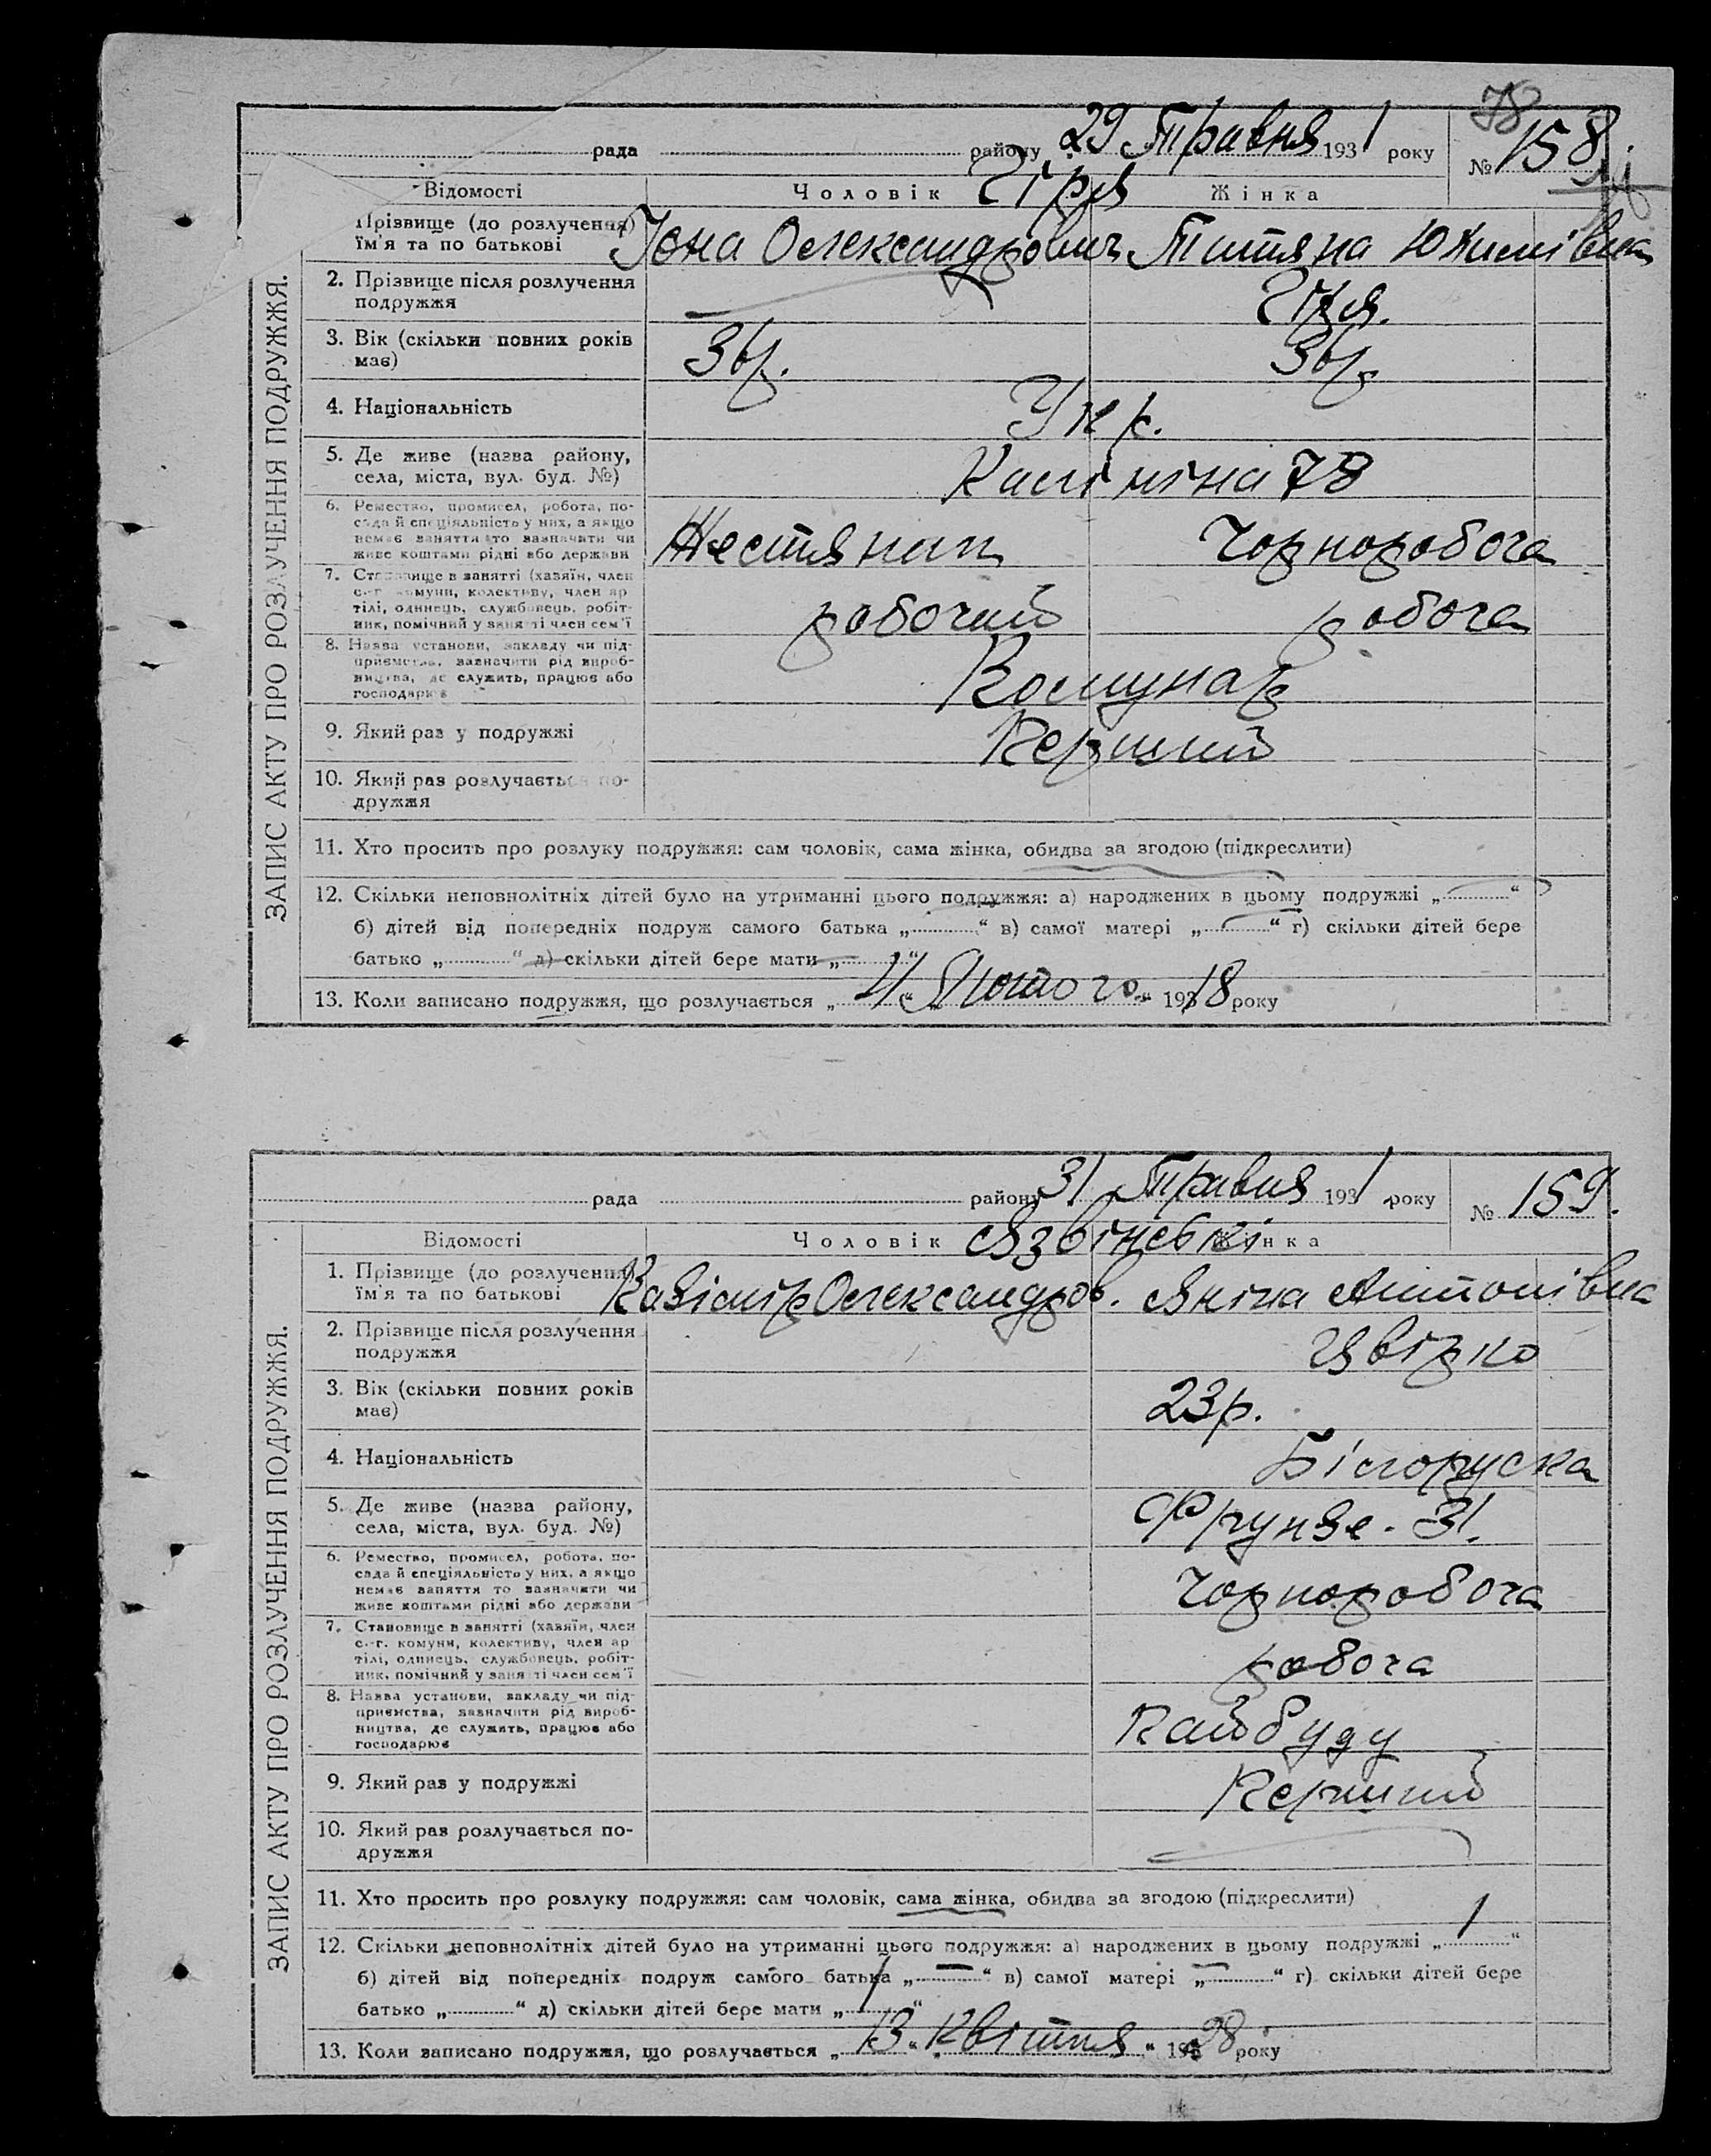 78
рада району 29 Травня 1931 року № 158
Відомості Чоловік Жінка
Прізвище (до розлучення) Їм'я та по батькові Іона Олександрович
2. Прізвище після розлучення подружжя
3. Вік (скільки повних років має) 36р. 36р.
4. Національність Укр.
5. Де живе (назва району, села, міста, вул. буд. №) Калініна 78
6. Ремество, промисел, робота, посада й спеціяльність у них, а якщо немає заняття то зазначити чи живе коштами рідні або держави Жестяник Чорноробоча
7. Становище в занятті (хазяїн, член с.-г. комуни, колективу, член артілі, одинець, службовець, робітник, помічний у занятті член сем'ї робочий робоча
8. Назва установи, закладу чи підприємства, зазначити рід виробництва, де служить, працює або господарює Комунар
9. Який раз у подружжі Перший
10. Який раз розлучається подружжя
11. Хто просить про розлуку подружжя: сам чоловік, сама жінка, обидва за згодою (підкреслити)
12. Скільки неповнолітніх дітей було на утриманні цього подружжя: а) народжених в цьому подружжі „ “
б) дітей від попередніх подруж самого батька „ “ в) самої матері „ “ г) скільки дітей бере
батько „ “ д) скільки дітей бере мати „ “
13. Коли записано подружжя, що розлучається „ “ Лютого 1918 року
ЗАПИС АКТУ ПРО РОЗЛУЧЕННЯ ПОДРУЖЖЯ.
рада району 31 Травня 1931 року № 159.
Відомості Чоловік Жінка
Язвінські
1. Прізвище (до розлучення) Їм'я та по батькові Казімір Олександров. Яніна Антонівна
2. Прізвище після розлучення подружжя Цвірко
3. Вік (скільки повних років має) 23р.
4. Національність Білоруска
5. Де живе (назва району, села, міста, вул. буд. №) Фрунзе. 31.
6. Ремество, промисел, робота, посада й спеціяльність у них, а якщо немає заняття то зазначити чи живе коштами рідні або держави Чорноробоча
7. Становище в занятті (хазяїн, член с.-г. комуни, колективу, член артілі, одинець, службовець, робітник, помічний у занятті член сем'ї робоча
8. Назва установи, закладу чи підприємства, зазначити рід виробництва, де служить, працює або господарює Райбуду
9. Який раз у подружжі Перший
10. Який раз розлучається подружжя
11. Хто просить про розлуку подружжя: сам чоловік, сама жінка, обидва за згодою (підкреслити)
12. Скільки неповнолітніх дітей було на утриманні цього подружжя: а) народжених в цьому подружжі „ 1 “
б) дітей від попередніх подруж самого батька „ — “ в) самої матері „ — “ г) скільки дітей бере
батько „ “ д) скільки дітей бере мати „ 1 “
13. Коли записано подружжя, що розлучається „ 13 “ Квітня 1928 року
ЗАПИС АКТУ ПРО РОЗЛУЧЕННЯ ПОДРУЖЖЯ.